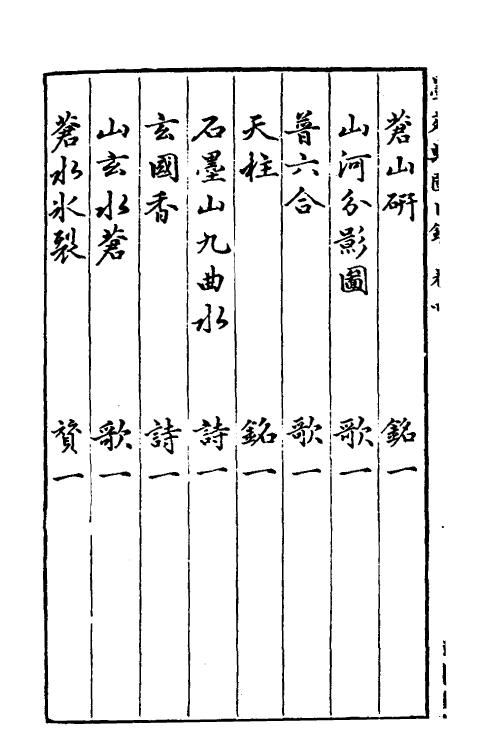 蒼山硏 銘一
山河分影圖 歌一
普六合 歌一
天柱 銘一
石墨山九曲水 詩一
玄國香 詩一
山玄水蒼 歌一
蒼水氷裂 賛一